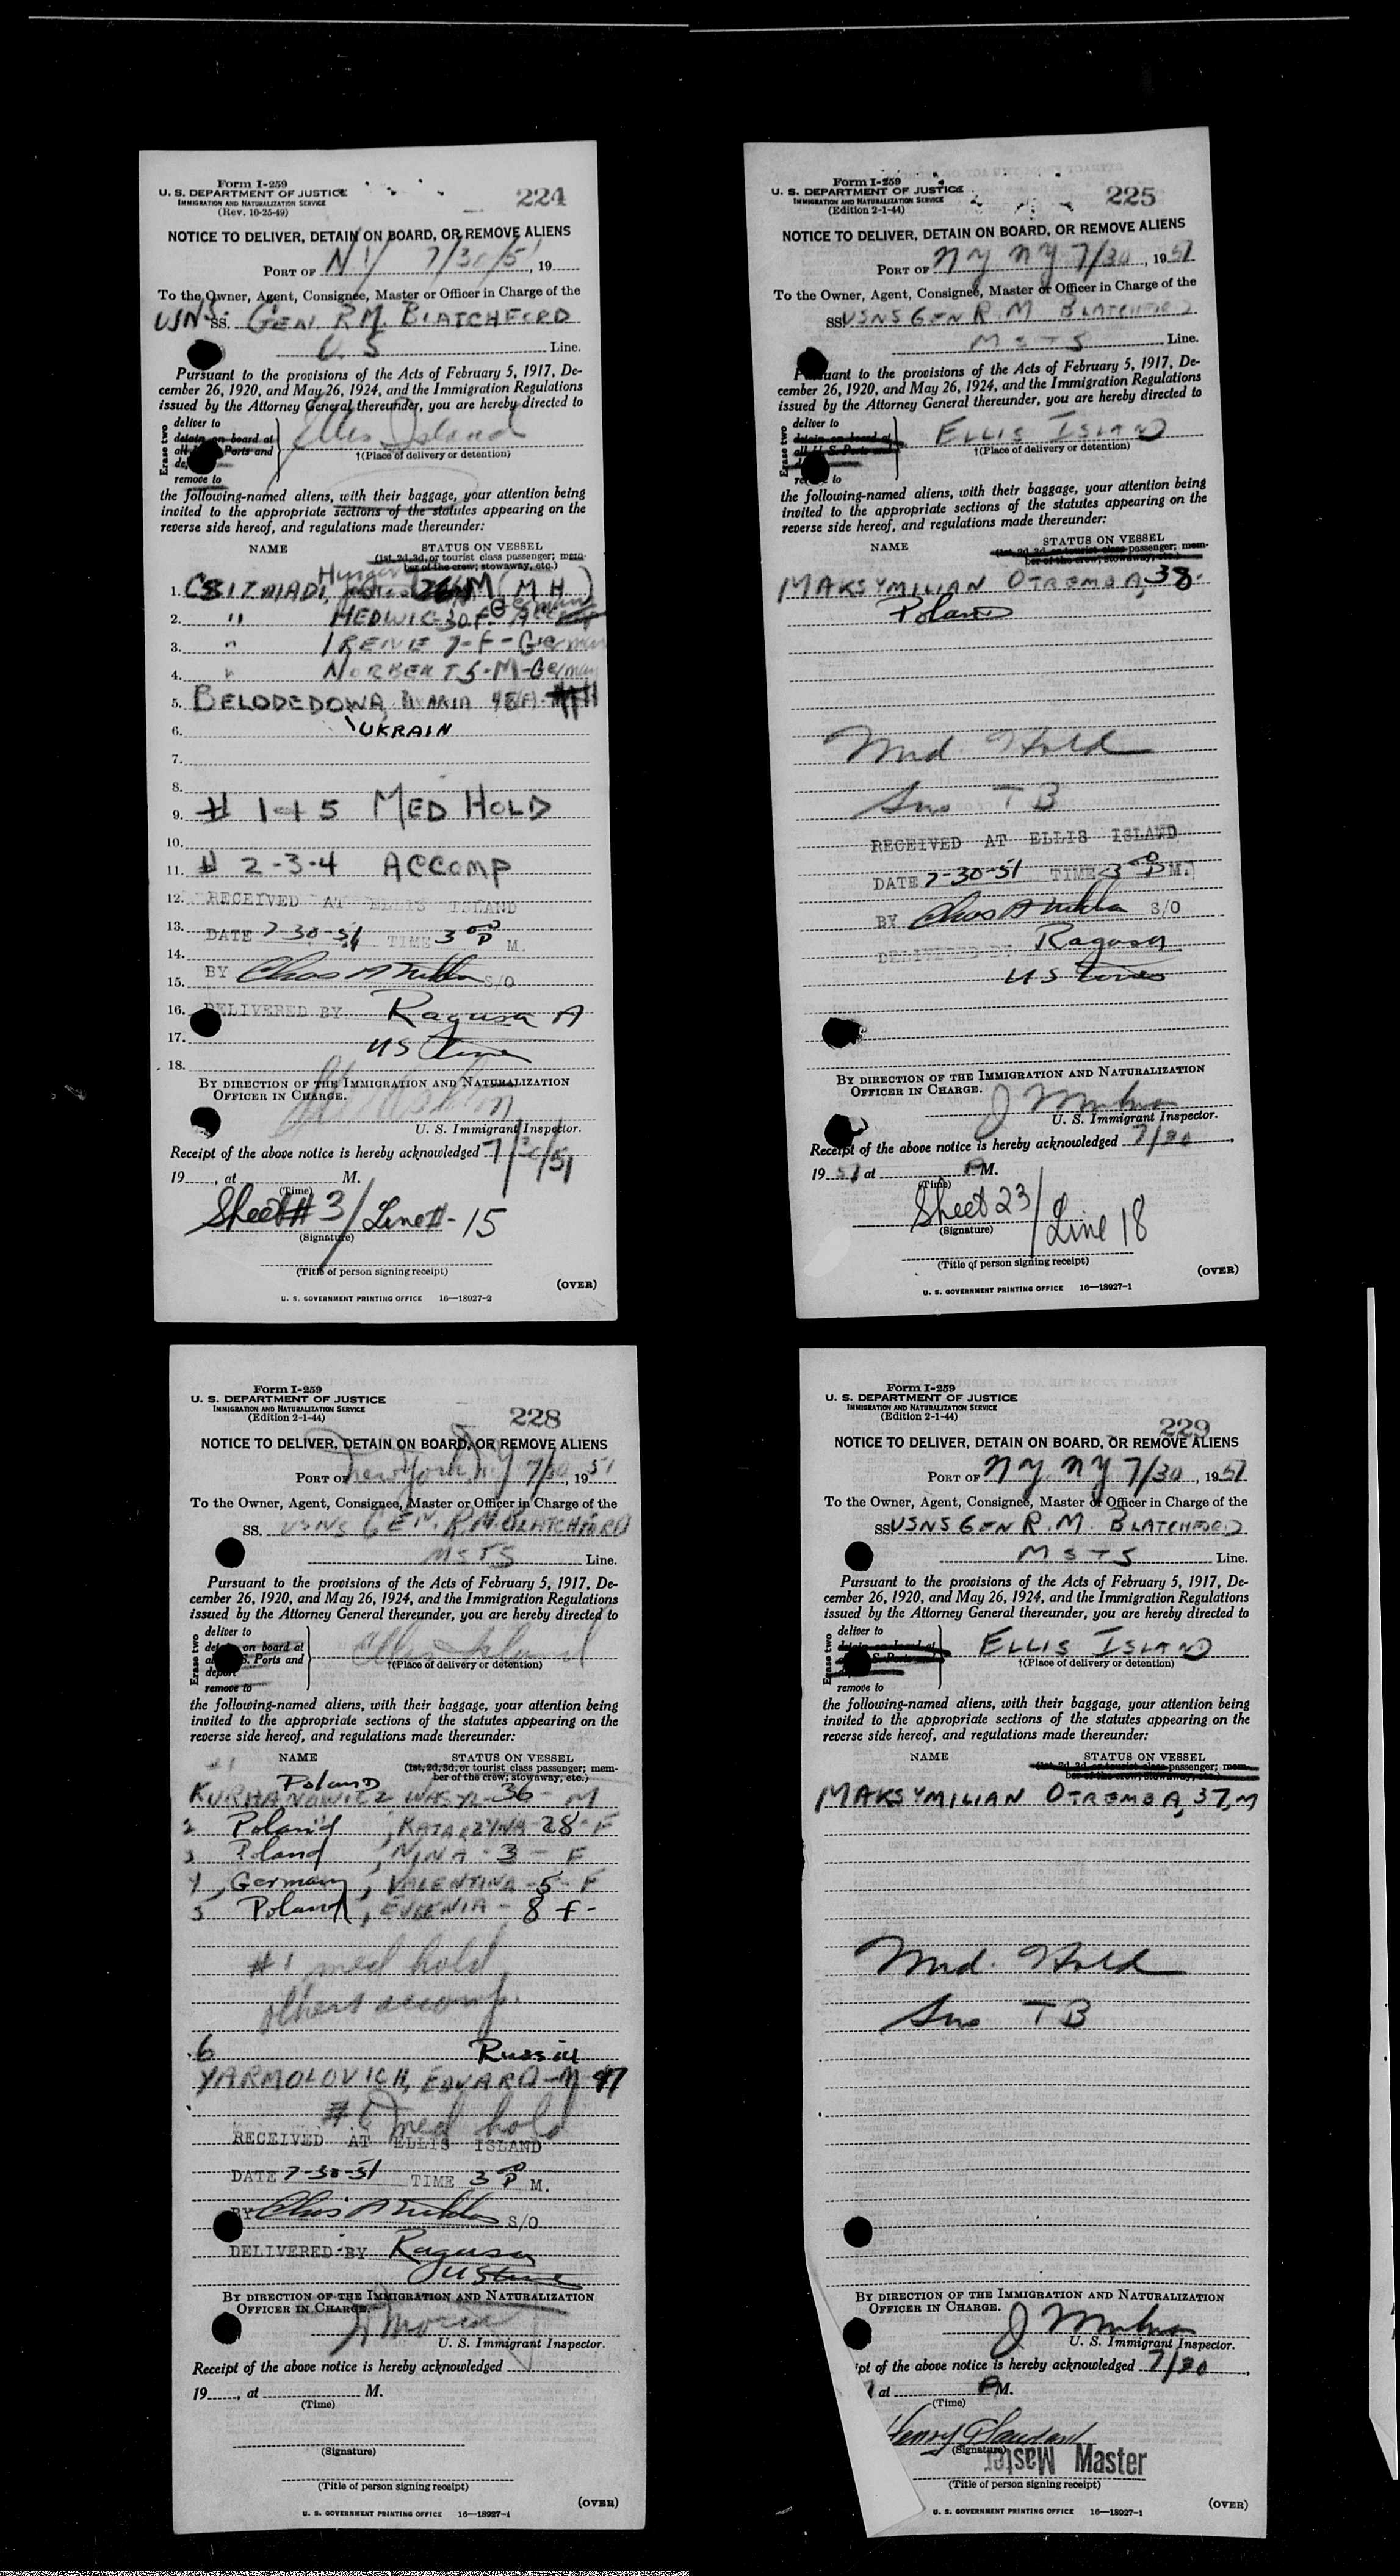 Form I-259
U. S. DEPARTMENT OF JUSTICE
IMMIGRATION AND NATURALIZATION SERVICE
(Rev. 10-25-49)
224
NOTICE TO DELIVER, DETAIN ON BOARD, OR REMOVE ALIENS
PORT OF NY 7/30/51, 19
To the Owner, Agent, Consignee, Master or Officer in Charge of the
USNS SS. GEN. R.M. BLATCHFORD
U.S Line.
Pursuant to the provisions of the Acts of February 5, 1917, De-
cember 26, 1920, and May 26, 1924, and the Immigration Regulations
issued by the Attorney General thereunder, you are hereby directed to
Erase two
deliver to
detain on board at
all U. S. Ports and
remove to
Ellis Island
†(Place of delivery or detention)
the following-named aliens, with their baggage, your attention being
invited to the appropriate sections of the statutes appearing on the
reverse side hereof, and regulations made thereunder:
NAME STATUS ON VESSEL
(1st, 2d, 3d, or tourist class passenger; mem-
ber of the crew; stowaway, etc.)
1. M (MH)
2. " HEDWIG 30 F German
3. " IRENE 7-F-German
4. " NORBERT 5-M-German
5. BELODEDOWA, MARIA
6. UKRAIN
7.
8.
9. # 1+5 MED HOLD
10.
11. # 2-3-4 ACCOMP
12. RECEIVED AT ELLIS ISLAND
13. DATE 7-30-51 TIME 3 00 P M.
14.
15. BY S/O
16. DELIVERED BY Ragusa A
17. US Lines
18.
BY DIRECTION OF THE IMMIGRATION AND NATURALIZATION
OFFICER IN CHARGE.
U. S. Immigrant Inspector.
Receipt of the above notice is hereby acknowledged 7/30/51
19, at M.
(Time)
Sheet # 3/ Line # - 15
(Signature)
(Title of person signing receipt)
(OVER)
U. S. GOVERNMENT PRINTING OFFICE 16—18927-2
Form I-259
U. S. DEPARTMENT OF JUSTICE
IMMIGRATION AND NATURALIZATION SERVICE
(Edition 2-1-44)
225
NOTICE TO DELIVER, DETAIN ON BOARD, OR REMOVE ALIENS
PORT OF NY NY 7/30, 1951
To the Owner, Agent, Consignee, Master or Officer in Charge of the
SS USNS GEN R.M BLATCHFORD
MSTS Line.
Pursuant to the provisions of the Acts of February 5, 1917, De-
cember 26, 1920, and May 26, 1924, and the Immigration Regulations
issued by the Attorney General thereunder, you are hereby directed to
Erase two
deliver to
detain on board at
all U. S. Ports and
remove to
ELLIS ISLAND
†(Place of delivery or detention)
the following-named aliens, with their baggage, your attention being
invited to the appropriate sections of the statutes appearing on the
reverse side hereof, and regulations made thereunder:
NAME STATUS ON VESSEL
(1st, 2d, 3d, or tourist class passenger; mem-
ber of the crew; stowaway, etc.)
MAKSYMILIAN OTREMBA, 38.
Poland
Med. Hold
Sus TB
RECEIVED AT ELLIS ISLAND
DATE 7-30-51 TIME 3 00 P M.
BY S/O
DELIVERED BY Ragusa
US Lines
BY DIRECTION OF THE IMMIGRATION AND NATURALIZATION
OFFICER IN CHARGE.
U. S. Immigrant Inspector.
Receipt of the above notice is hereby acknowledged 7/30,
1951 at P M.
(Time)
Sheet 23/ Line 18
(Signature)
(Title of person signing receipt)
(OVER)
U. S. GOVERNMENT PRINTING OFFICE 16—18927-1
Form I-259
U. S. DEPARTMENT OF JUSTICE
IMMIGRATION AND NATURALIZATION SERVICE
(Edition 2-1-44)
228
NOTICE TO DELIVER, DETAIN ON BOARD, OR REMOVE ALIENS
PORT OF New York, NY 7/30, 1951
To the Owner, Agent, Consignee, Master or Officer in Charge of the
SS. USNS GEN. R.M. BLATCHFORD
MSTS Line.
Pursuant to the provisions of the Acts of February 5, 1917, De-
cember 26, 1920, and May 26, 1924, and the Immigration Regulations
issued by the Attorney General thereunder, you are hereby directed to
Erase two
deliver to
detain on board at
all U. S. Ports and
deport
remove to
Ellis Island
†(Place of delivery or detention)
the following-named aliens, with their baggage, your attention being
invited to the appropriate sections of the statutes appearing on the
reverse side hereof, and regulations made thereunder:
NAME STATUS ON VESSEL
(1st, 2d, 3d, or tourist class passenger; mem-
ber of the crew; stowaway, etc.)
Poland
KURHANOWICZ WASYL-36-M
2 Poland, KATARZYNA-28-F
3 Poland, NINA-3-F
4, Germany, VALENTINA-5-F
5 Poland, EUGENIA-8 F-
#1 med hold
others accomp.
6 Russia
YARMOLOVICH, EDVARD-M 47
#6 med hold
RECEIVED AT ELLIS ISLAND
DATE 7-30-51 TIME 3 00 P M.
BY S/O
DELIVERED BY Ragusa
US Lines
BY DIRECTION OF THE IMMIGRATION AND NATURALIZATION
OFFICER IN CHARGE.
U. S. Immigrant Inspector.
Receipt of the above notice is hereby acknowledged
19, at M.
(Time)
(Signature)
(Title of person signing receipt)
(OVER)
U. S. GOVERNMENT PRINTING OFFICE 16—18927-1
Form I-259
U. S. DEPARTMENT OF JUSTICE
IMMIGRATION AND NATURALIZATION SERVICE
(Edition 2-1-44)
229
NOTICE TO DELIVER, DETAIN ON BOARD, OR REMOVE ALIENS
PORT OF NY NY 7/30, 1951
To the Owner, Agent, Consignee, Master or Officer in Charge of the
SS USNS GEN R.M. BLATCHFORD
MSTS Line.
Pursuant to the provisions of the Acts of February 5, 1917, De-
cember 26, 1920, and May 26, 1924, and the Immigration Regulations
issued by the Attorney General thereunder, you are hereby directed to
Erase two
deliver to
detain on board at
S. Ports
remove to
ELLIS ISLAND
†(Place of delivery or detention)
the following-named aliens, with their baggage, your attention being
invited to the appropriate sections of the statutes appearing on the
reverse side hereof, and regulations made thereunder:
NAME STATUS ON VESSEL
(1st, 2d, 3d, or tourist class passenger; mem-
ber of the crew; stowaway, etc.)
MAKSYMILIAN OTREMBA, 37, M
Med. Hold
Sus TB
BY DIRECTION OF THE IMMIGRATION AND NATURALIZATION
OFFICER IN CHARGE.
U. S. Immigrant Inspector.
pt of the above notice is hereby acknowledged 7/30,
at P M.
(Time)
Henry
(Signature)
Master Master
(Title of person signing receipt)
(OVER)
U. S. GOVERNMENT PRINTING OFFICE 16—18927-1